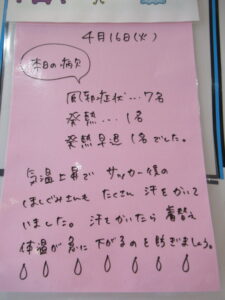 4月16日(火)
本日の病欠
風邪症状…7名
発熱…1名
発熱早退 1名でした。
気温上昇で サッカー後の
ほしぐみさんも たくさん 汗をかいて
いました。汗をかいたら 着替え
体温が急に 下がるのを 防ぎましょう。